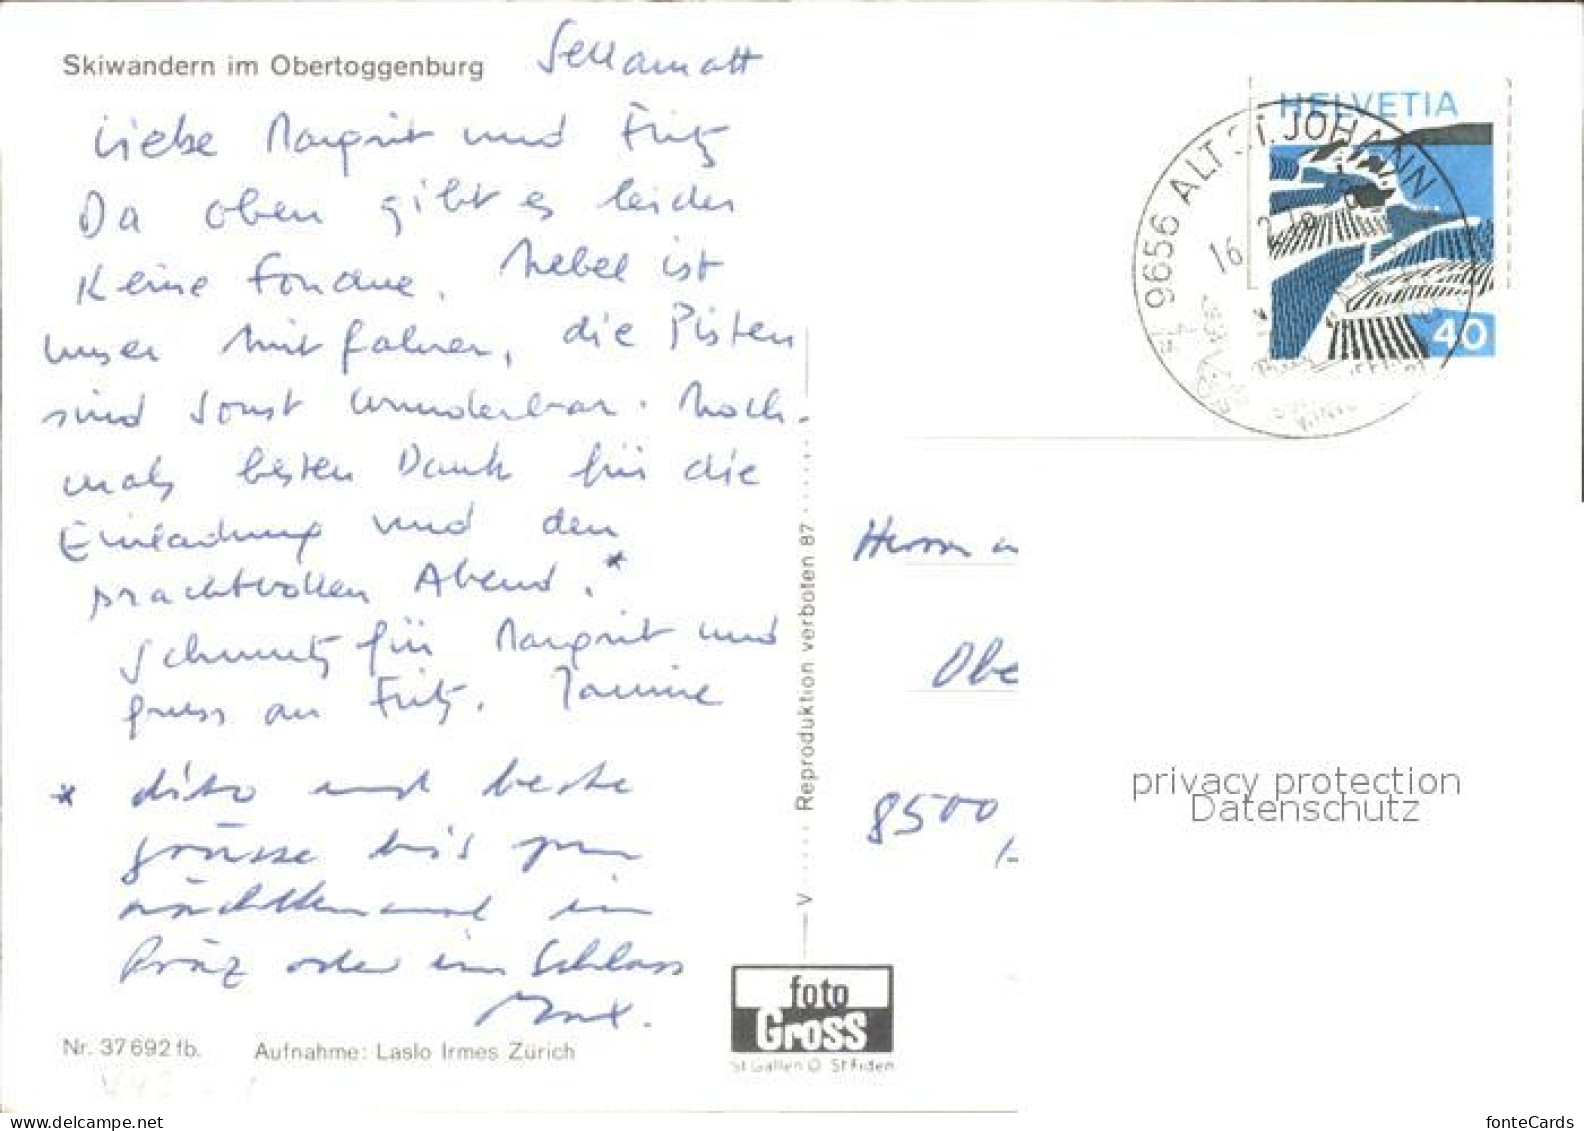 Skiwandern im Obertoggenburg
Sellamatt
Liebe Margrit und Fritz
Da oben gibt es leider
keine Fondue. Nebel ist
unser Mitfahrer, die Pisten
sind sonst wunderbar. Noch-
mals besten Dank für die
Einladung und den
prachtvollen Abend.*
Schmutz für Margrit und
gruss an Fritz. Janine
* dito und beste
grüsse bis zum
nächstenmal im
Präz oder im Schloss
Max.
Nr. 37 692 fb.
Aufnahme: Laslo Irmes Zürich
V ..... Reproduktion verboten 87 .....
foto
Gross
St Gallen O St Fiden
HELVETIA
40
9656 ALT ST. JOHANN
16. 2.
Herrn
Obe
8500
privacy protection
Datenschutz
fonteCards